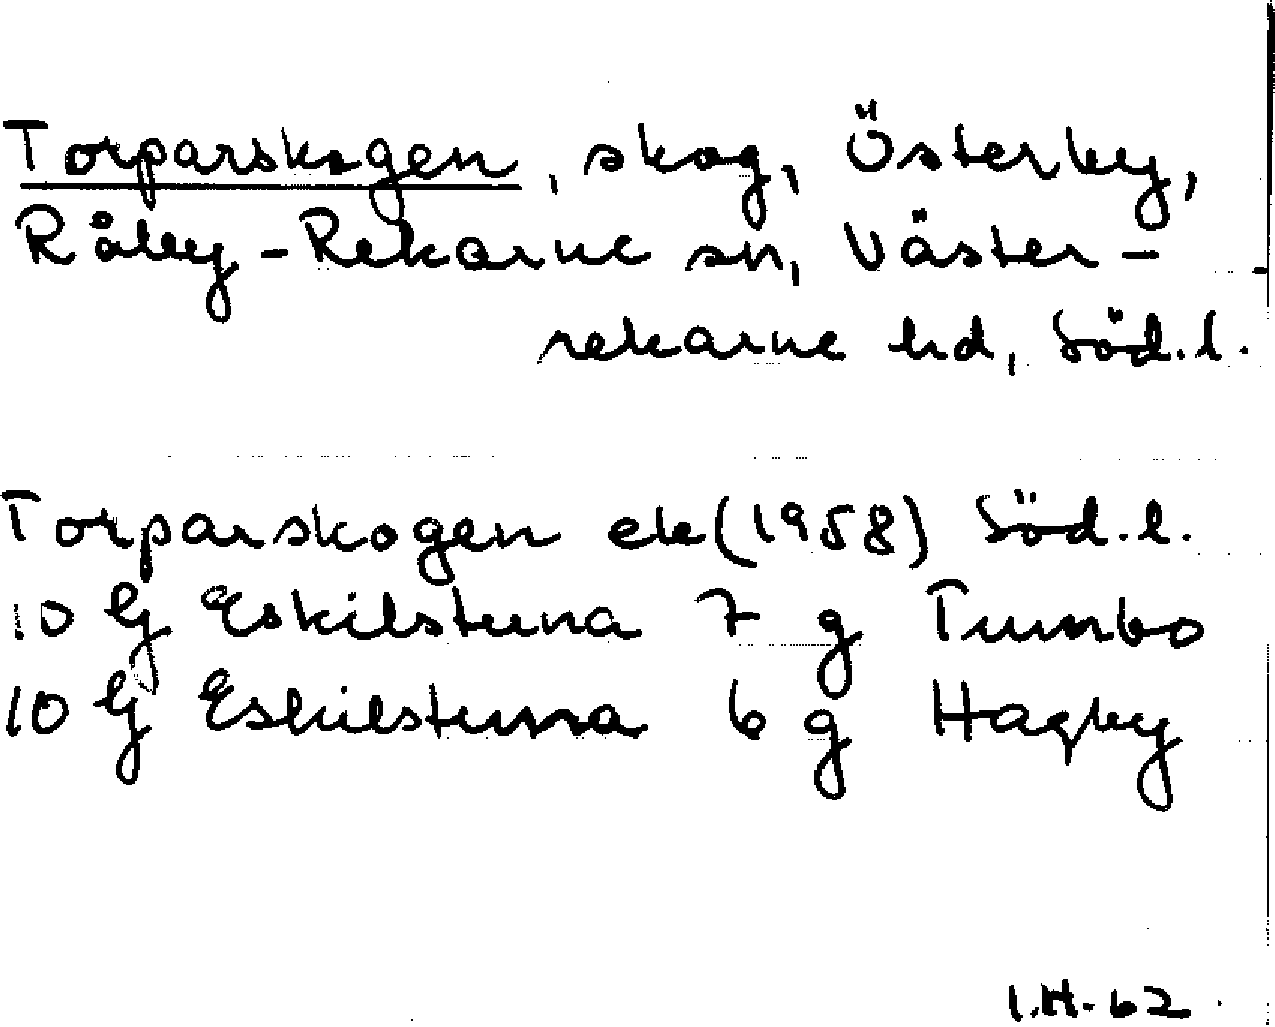 Torparskogen, skog, Österby,
Råby-Rekarne sn, Väster-
rekarne hd, Söd.l.
Torparskogen ek (1958) Söd.l.
10 G Eskilstuna 7 g Tumbo
10 G Eskilstuna 6 g Hagby
I.H-62